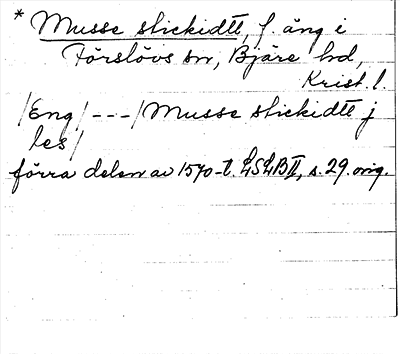 * Musse stickidtt, f. äng i
Förslövs sn, Bjäre hd,
Krist. l.
/Eng/ --- / Musse stickidtt j
les/
förra delen av 1570-t. LSLB II, s. 29. orig.